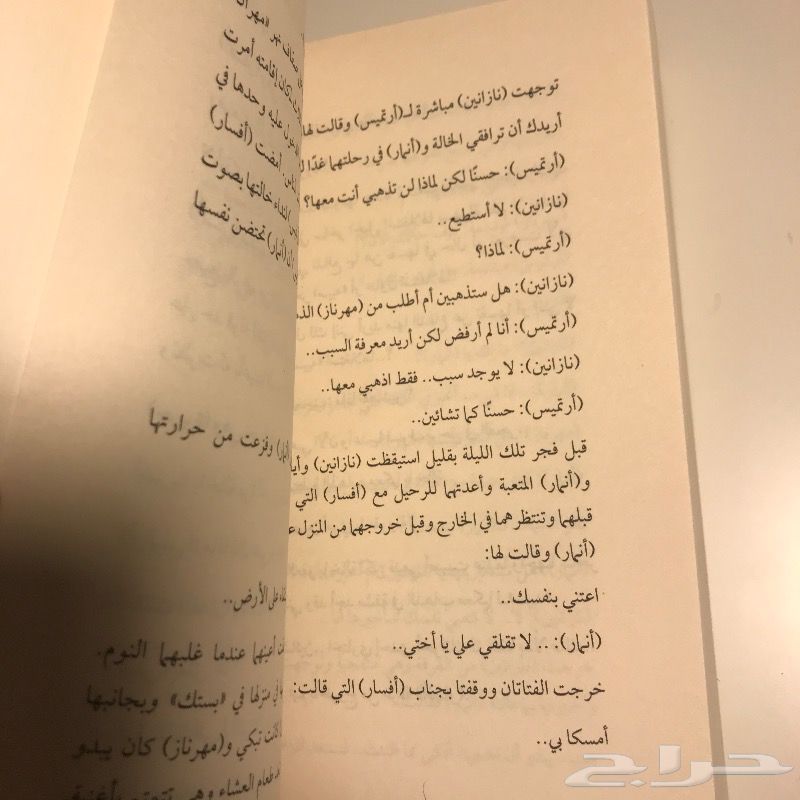 توجهت (نازانين) مباشرة لـ(أرتميس) وقالت لها
أريدك أن ترافقي الخالة و(أنمار) في رحلتهما غدًا
(أرتميس): حسنًا لكن لماذا لن تذهبي أنت معها؟
(نازانين): لا أستطيع..
(أرتميس): لماذا؟
(نازانين): هل ستذهبين أم أطلب من (مهرناز)
(أرتميس): أنا لم أرفض لكن أريد معرفة السبب..
(نازانين): لا يوجد سبب.. فقط اذهبي معها..
(أرتميس): حسنًا كما تشائين..
قبل فجر تلك الليلة بقليل استيقظت (نازانين)
و(أنمار) المتعبة وأعدتهما للرحيل مع (أفسار) التي
قبلهما وتنتظرهما في الخارج وقبل خروجهما من المنزل
(أنمار) وقالت لها:
اعتني بنفسك..
(أنمار): .. لا تقلقي علي يا أختي..
خرجت الفتاتان ووقفتا بجناب (أفسار) التي قالت:
أمسكا بي..
ضفاف نهر «مهران
كان إقامته أمرت
عليه وحدها في
أمضت (أفسار)
خالتها بصوت
(أنمار) تحتضن نفسها
(أنمار) وفزعت من حرارتها
على الأرض..
أعينهما عندما غلبهما النوم.
في منزلها في «بستك» وبجانبها
كانت تبكي و(مهرناز) كان يبدو
طعام العشاء وهي تتمتم بأغنية
حراج